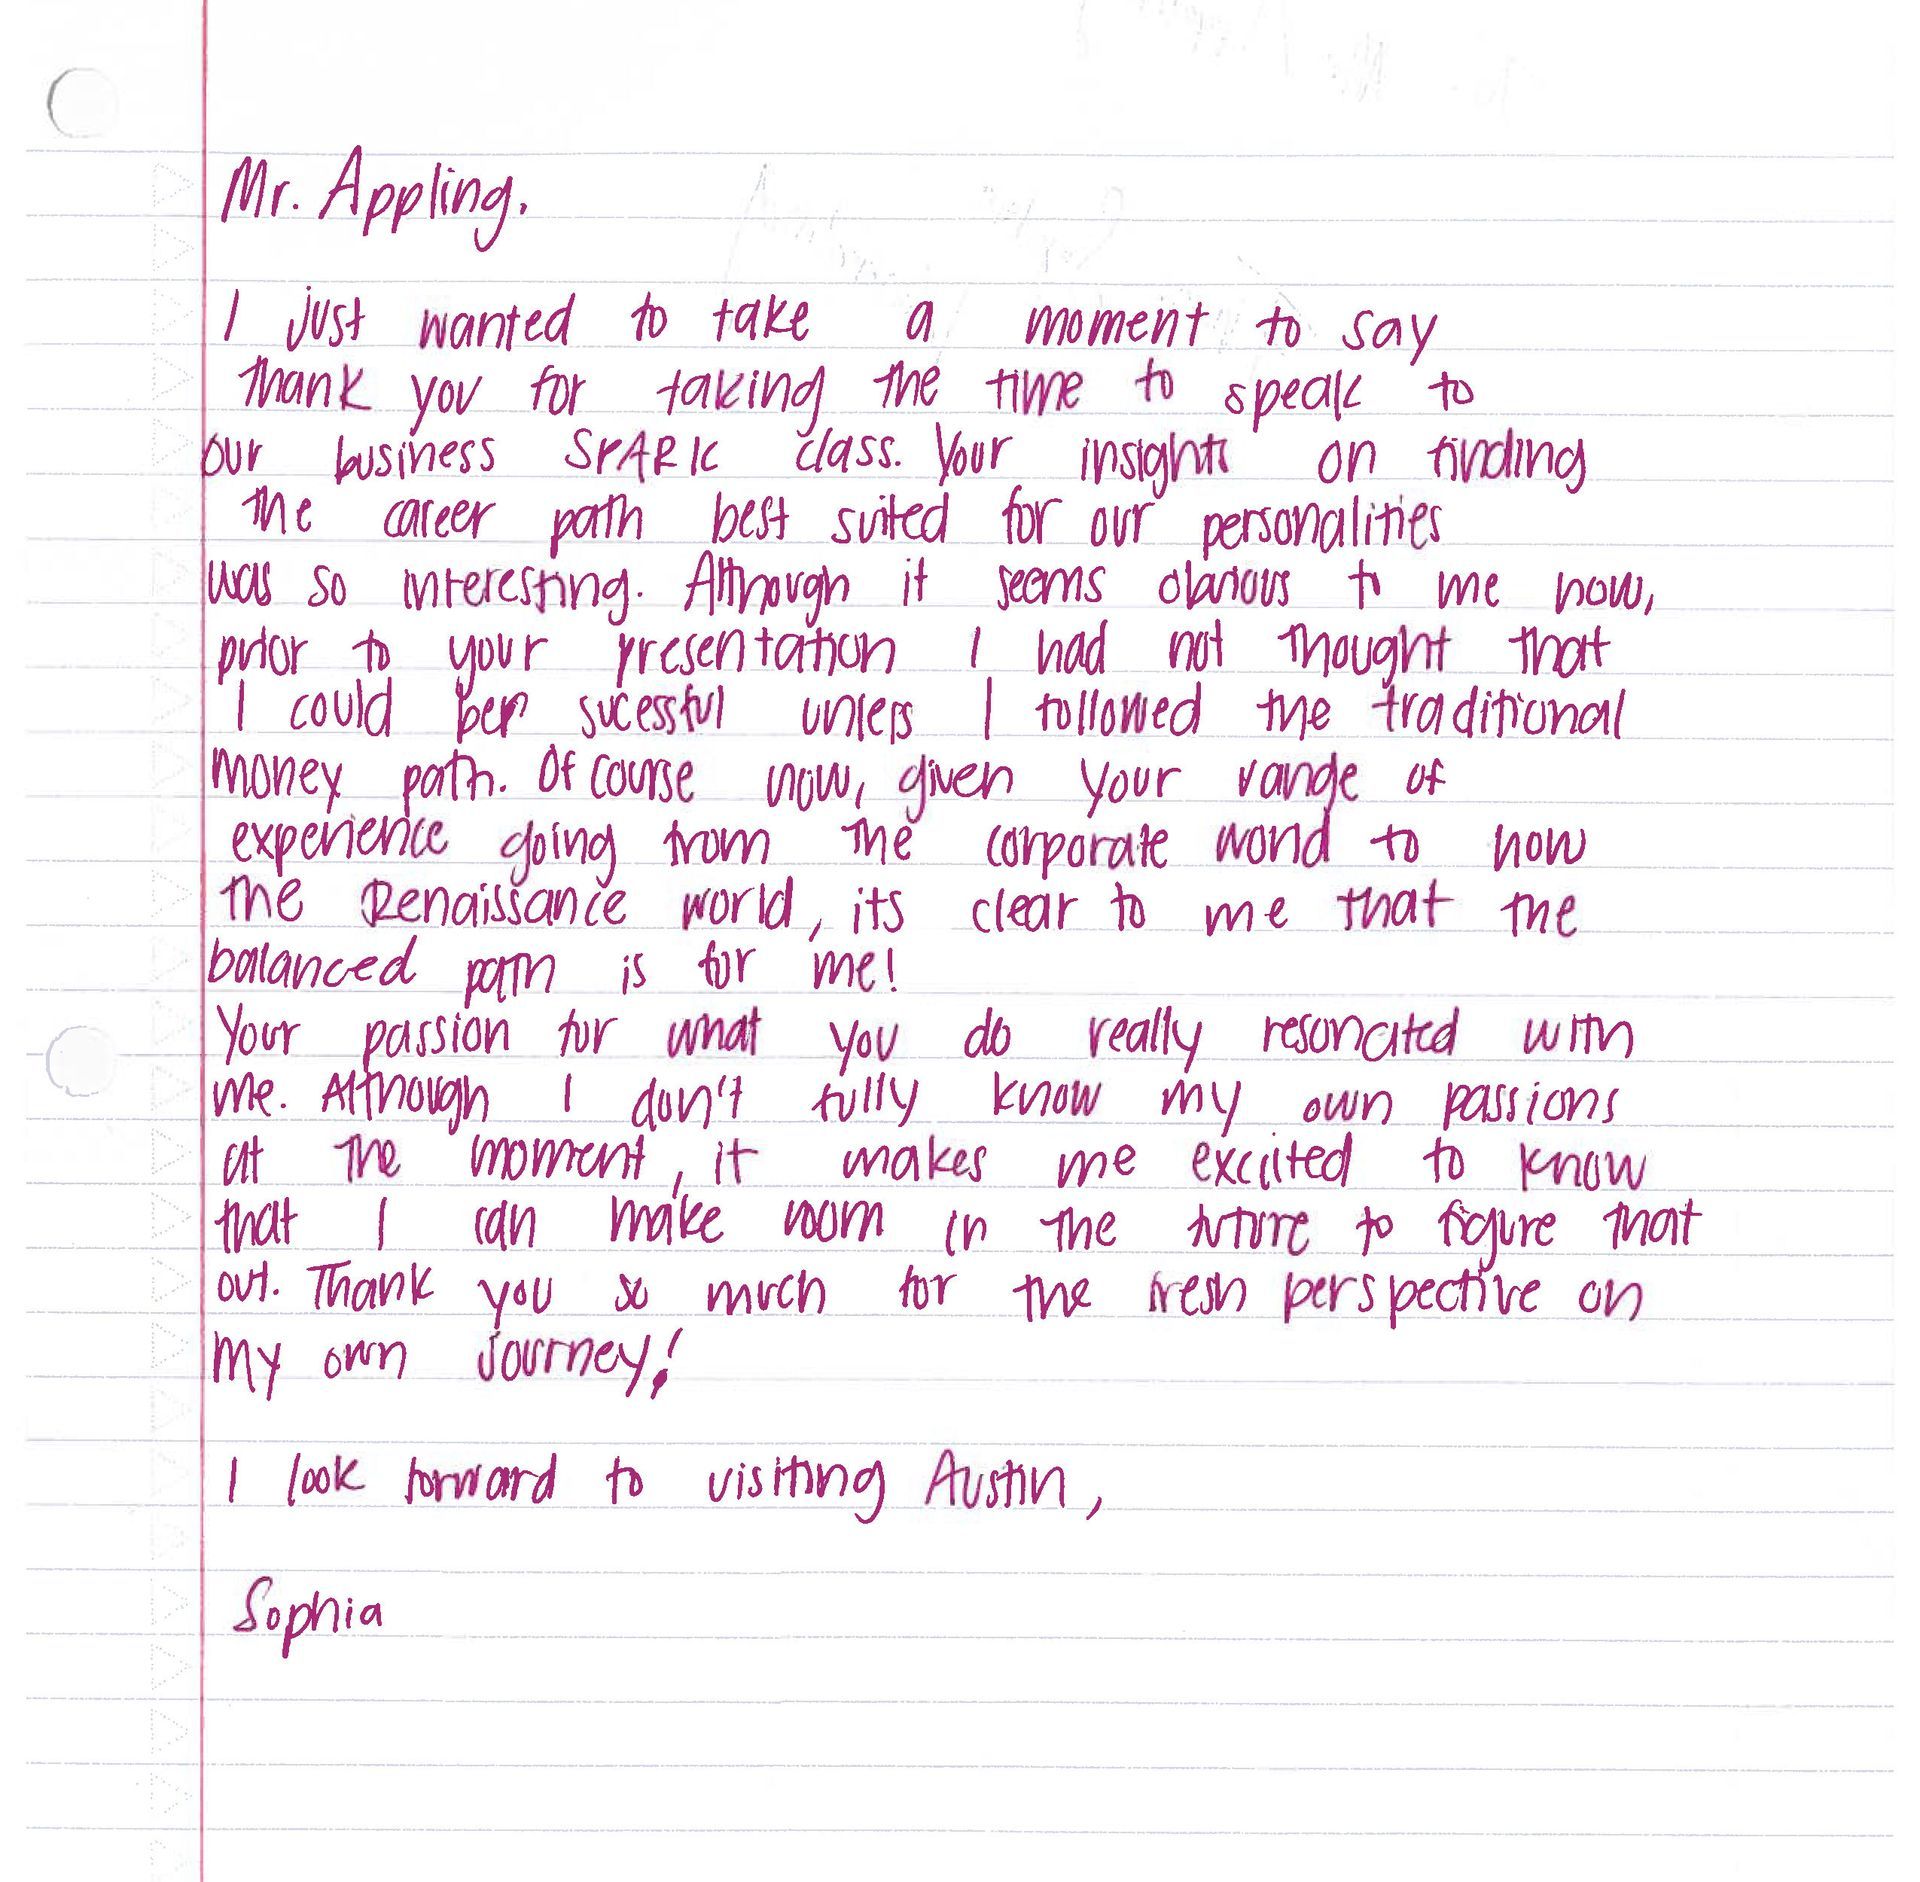 Mr. Appling.
I just wanted to take a moment to say
thank you for taking the time to speak to
our business SPARK class. Your insights on finding
the career path best suited for our personalities
was so interesting. Although it seems obvious to me now,
prior to your presentation I had not thought that
I could be sucessful unless I followed the traditional
money path. Of course now, given your range of
experience going from the corporate world to now
the Renaissance world, its clear to me that the
balanced path is for me!
Your passion for what you do really resonated with
me. Although I don't fully know my own passions
at the moment, it makes me excited to know
that I can make room in the future to figure that
out. Thank you so much for the fresh perspective on
my own journey!
I look forward to visiting Austin,
Sophia